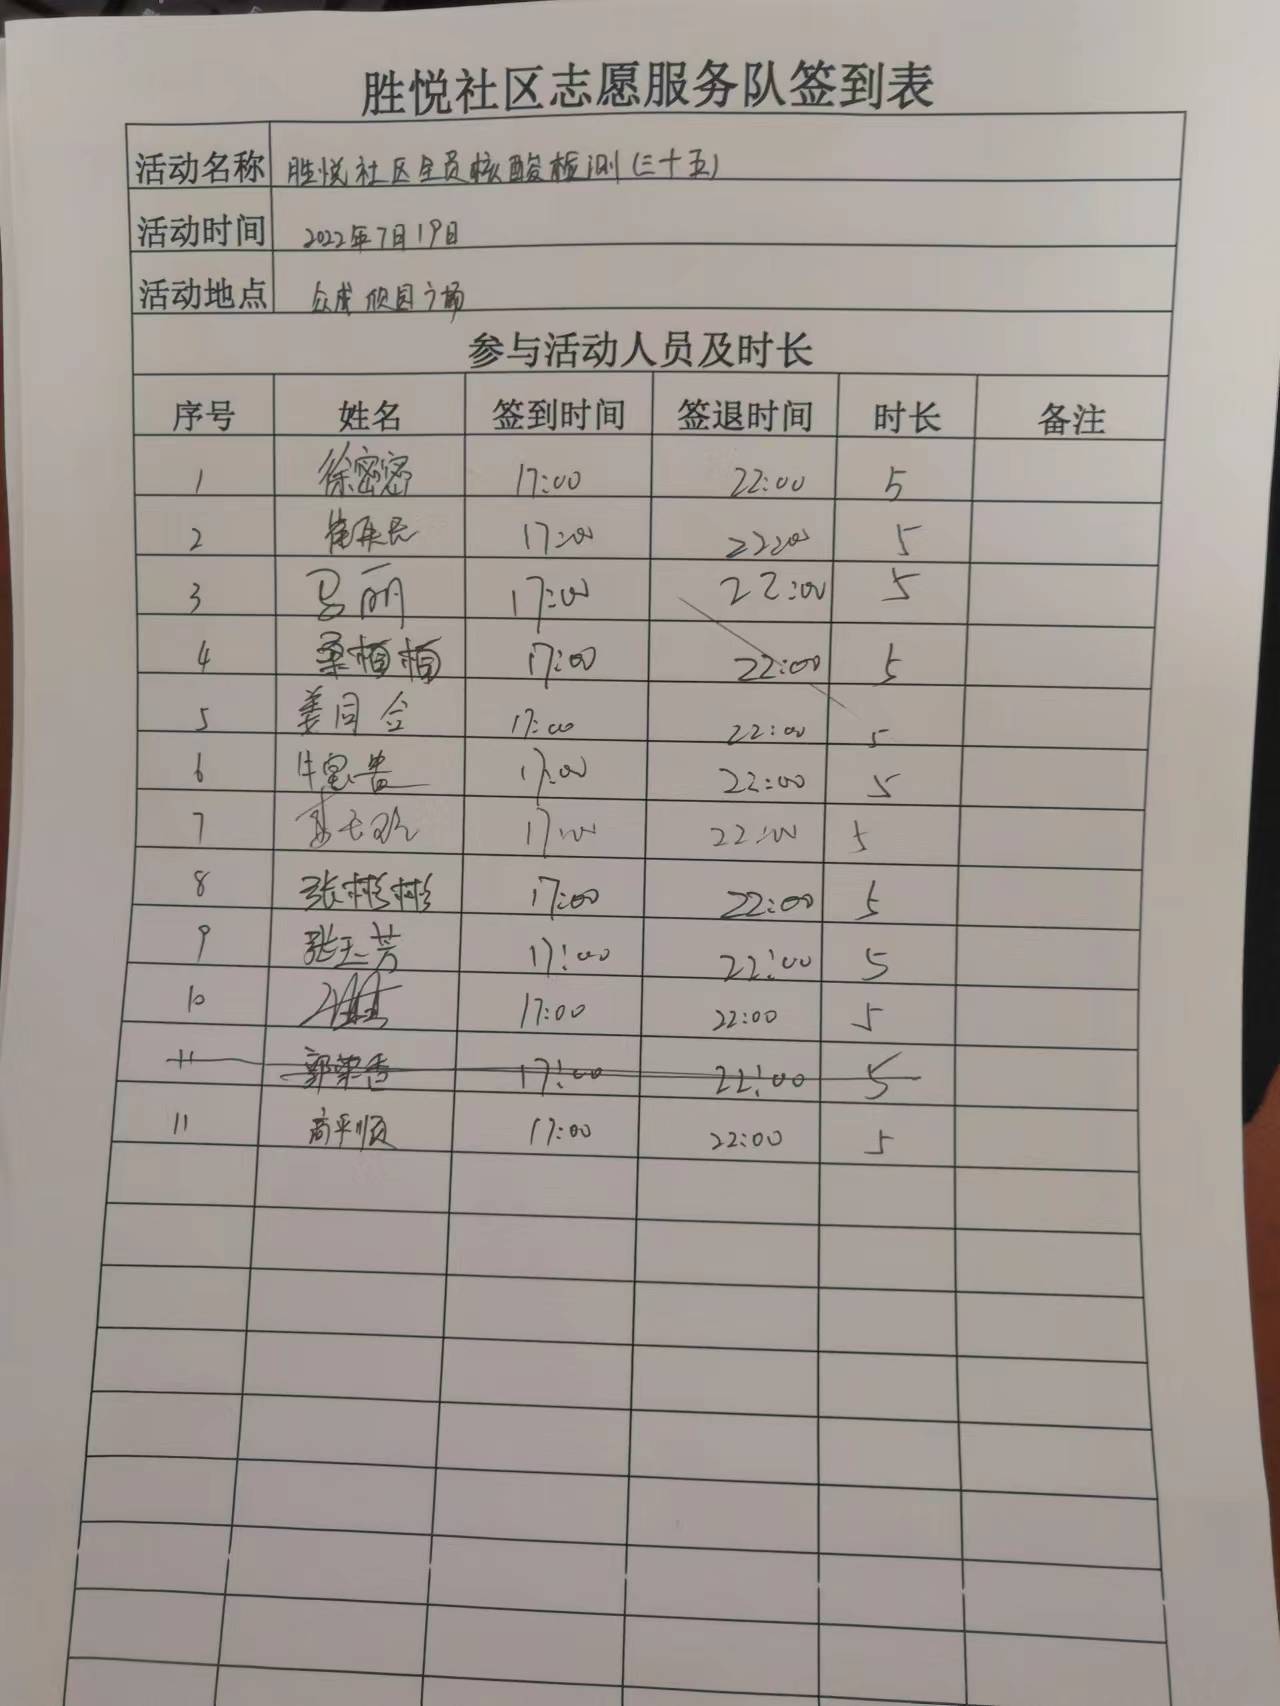 胜悦社区志愿服务队签到表
活动名称 胜悦社区全员核酸检测(三十五)
活动时间 2022年7月19日
活动地点 众成 园广场
参与活动人员及时长
序号 姓名 签到时间 签退时间 时长 备注
1 徐密密 17:00 22:00 5
2 17:00 22:00 5
3 马丽 17:00 22:00 5
4 桑楠楠 17:00 22:00 5
5 姜同合 17:00 22:00 5
6 17:00 22:00 5
7 17:00 22:00 5
8 张彬彬 17:00 22:00 5
9 张玉芳 17:00 22:00 5
10 17:00 22:00 5
11 郭荣香 17:00 22:00 5
11 商平顺 17:00 22:00 5